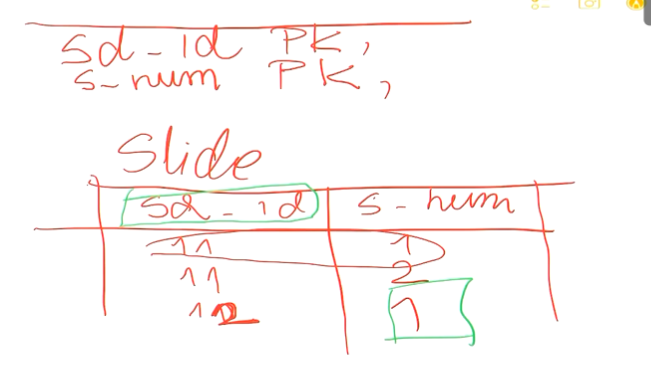 sd-id PK,
s-num PK,
Slide
sd-id s-num
11 1
11 2
12 1